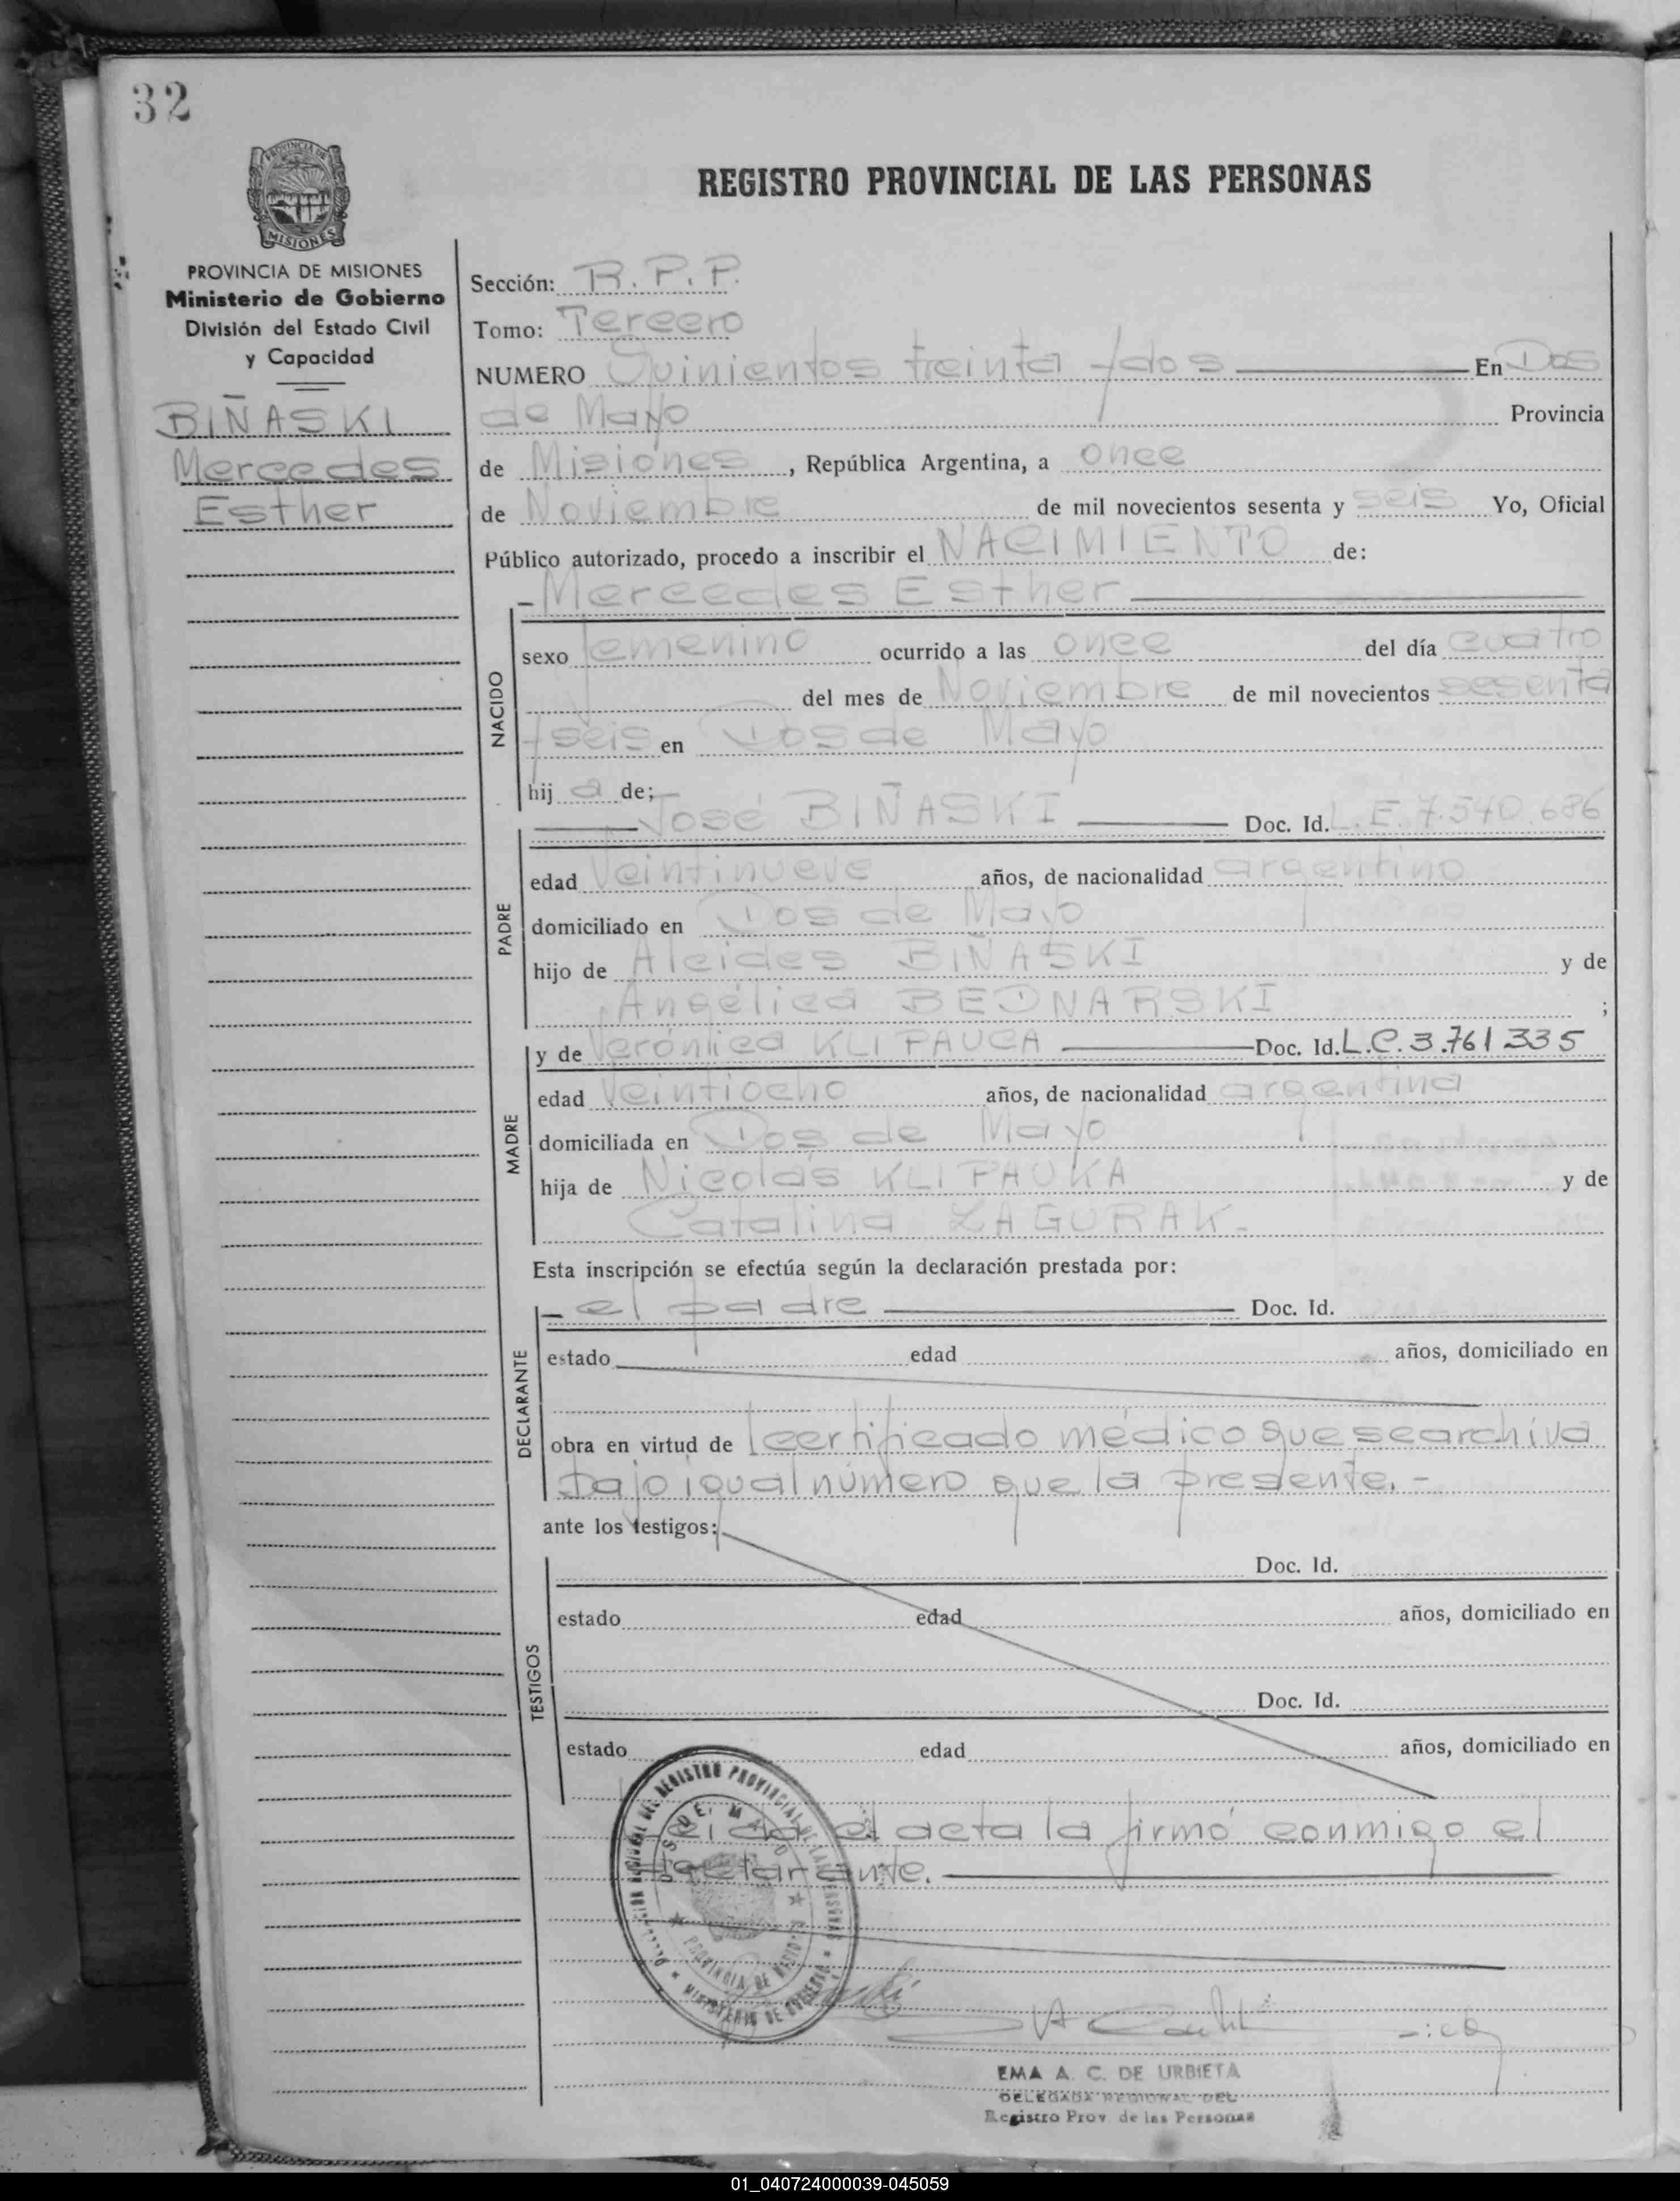 32
PROVINCIA DE
MISIONES
REGISTRO PROVINCIAL DE LAS PERSONAS
PROVINCIA DE MISIONES
Ministerio de Gobierno
División del Estado Civil
y Capacidad
BIÑASKI
Mercedes
Esther
Sección: R.P.P.
Tomo: Tercero
NUMERO Quinientos treinta y dos En Dos
de Mayo Provincia
de Misiones, República Argentina, a once
de Noviembre de mil novecientos sesenta y seis Yo, Oficial
Público autorizado, procedo a inscribir el NACIMIENTO de:
- Mercedes Esther
NACIDO
sexo femenino ocurrido a las once del día cuatro
del mes de Noviembre de mil novecientos sesenta
y seis en Dos de Mayo
hij a de:
PADRE
José BIÑASKI Doc. Id. L.E. 7.540.686
edad Veintinueve años, de nacionalidad argentino
domiciliado en Dos de Mayo
hijo de Alcides BIÑASKI y de
Angélica BEDNARSKI ;
MADRE
y de Verónica KLIPAUCA Doc. Id. L.C. 3.761335
edad Veintiocho años, de nacionalidad argentina
domiciliada en Dos de Mayo
hija de Nicolás KLIPAUKA y de
Catalina ZAGURAK.-
Esta inscripción se efectúa según la declaración prestada por:
DECLARANTE
- el padre Doc. Id.
estado edad años, domiciliado en
obra en virtud de l certificado médico que se archiva
bajo igual número que la presente.-
ante los testigos:
TESTIGOS
Doc. Id.
estado edad años, domiciliado en
Doc. Id.
estado edad años, domiciliado en
Leida el acta la firmó conmigo el
declarante.
REGISTRO PROVINCIAL DE LAS PERSONAS
DOS DE MAYO
PROVINCIA DE MISIONES
MINISTERIO DE GOBIERNO
EMA A. C. DE URBIETA
DELEGADA REGIONAL DEL
Registro Prov. de las Personas
01_040724000039-045059